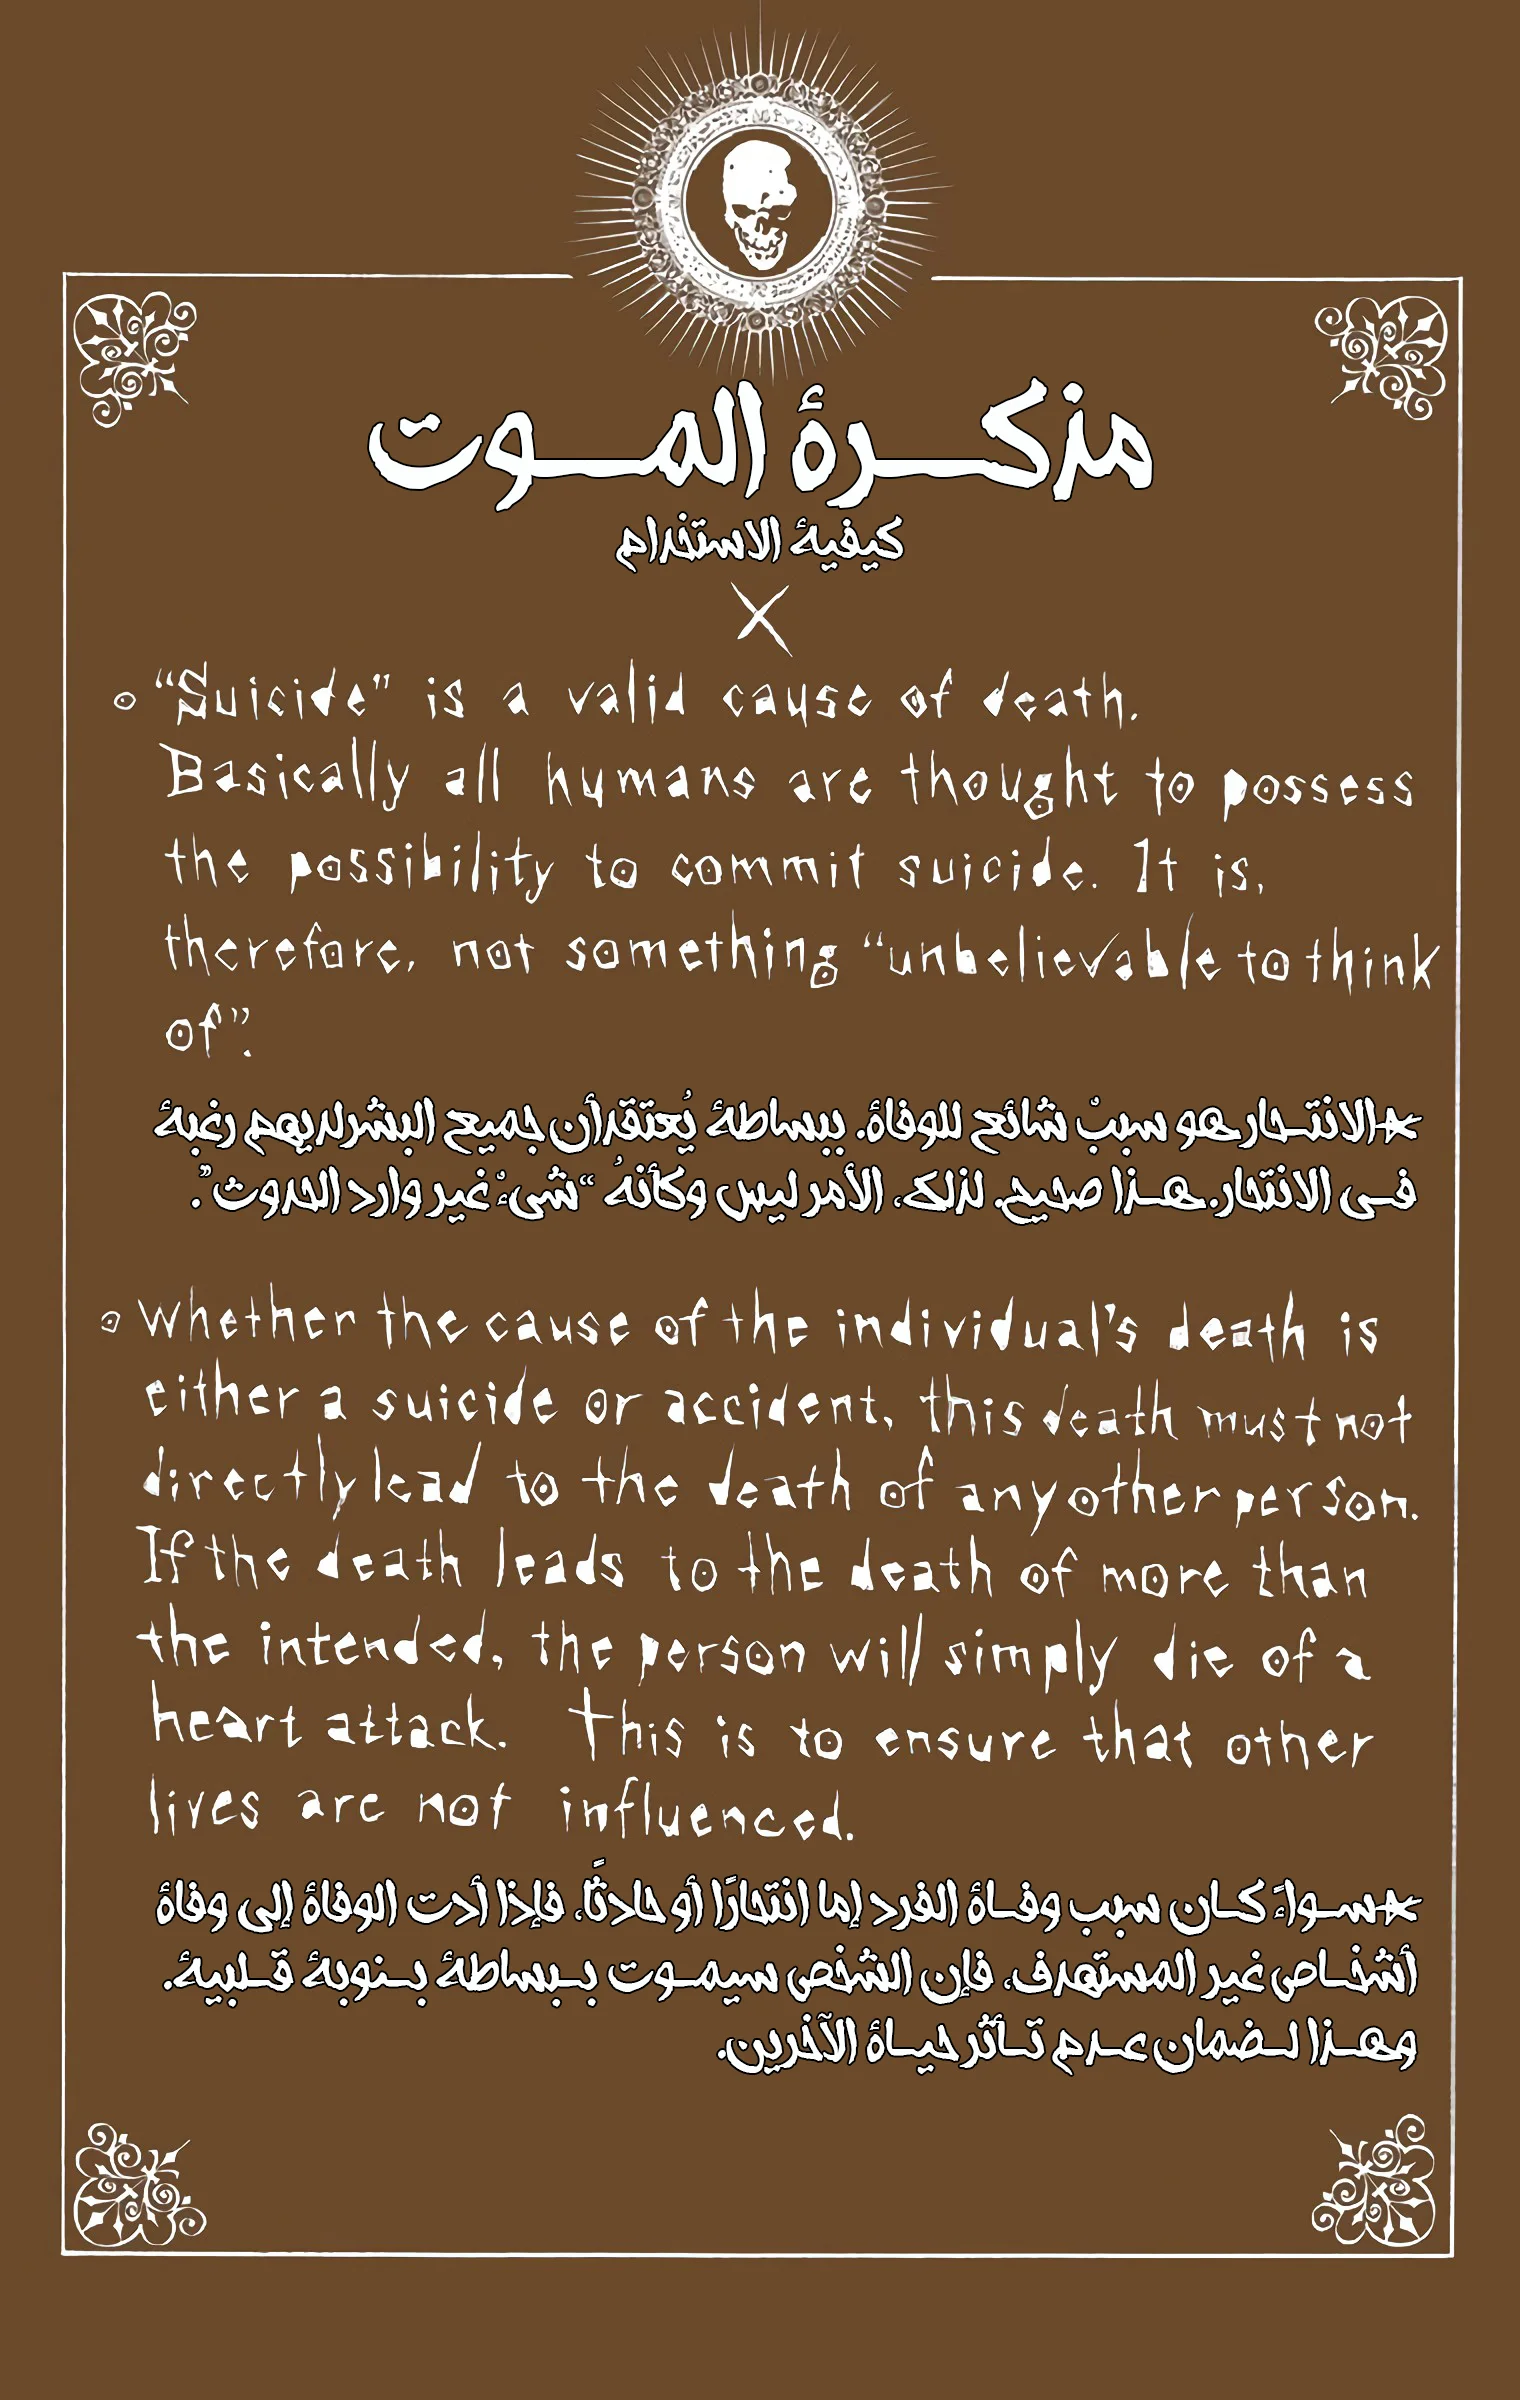 مذكرة الموت
كيفية الاستخدام
X
“Suicide” is a valid cause of death.
Basically all humans are thought to possess
the possibility to commit suicide. It is,
therefore, not something “unbelievable to think
of”.
*الانتحار هو سببٌ شائع للوفاة. ببساطة يُعتقد أن جميع البشر لديهم رغبة
في الانتحار. هذا صحيح. لذلك، الأمر ليس وكأنهُ “شيءٌ غير وارد الحدوث”.
Whether the cause of the individual's death is
either a suicide or accident, this death must not
directly lead to the death of any other person.
If the death leads to the death of more than
the intended, the person will simply die of a
heart attack. This is to ensure that other
lives are not influenced.
*سواءً كان سبب وفاة الفرد إما انتحارًا أو حادثًا، فإذا أدت الوفاة إلى وفاة
أشخاص غير المستهدف، فإن الشخص سيموت ببساطة بنوبة قلبية.
وهذا لضمان عدم تأثر حياة الآخرين.